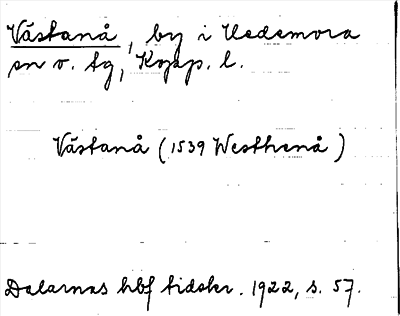 Västanå, by i Hedemora
sn o. tg, Kopp. l.
Västanå (1539 Westhenå)
Dalarnas hbf tidskr. 1922, s. 57.